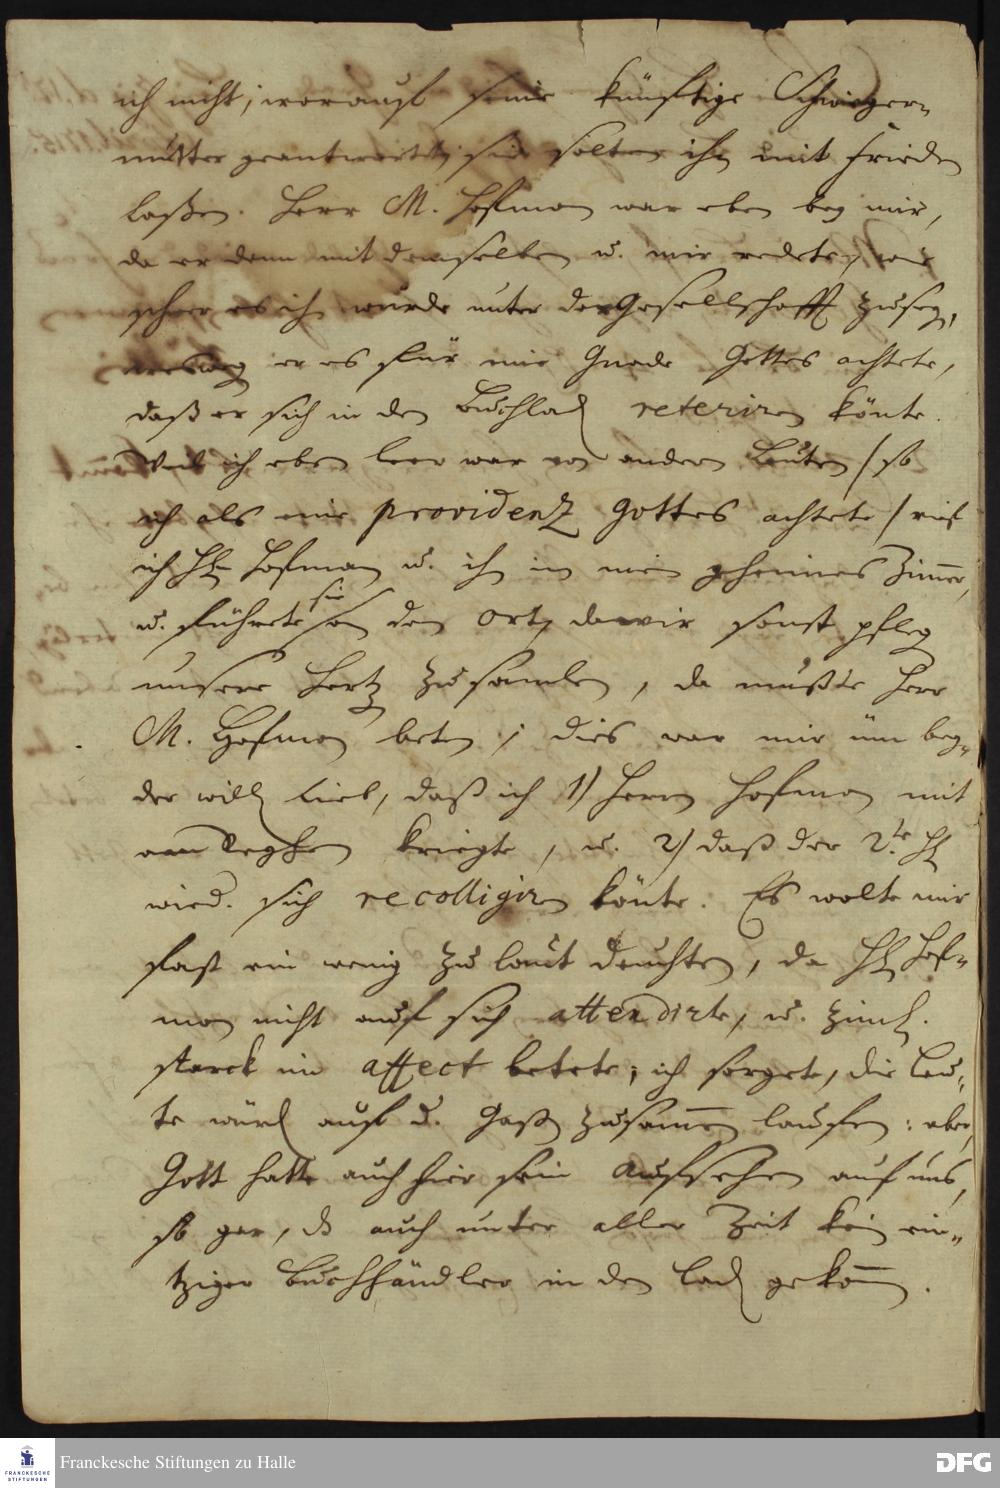 ich nicht; worauf seine künftige Schwieger-
mutter geantwortet, sie solten ihn mit Frieden
laßen. Herr M. Hofman war eben bey mir,
da er denn mit demselben u. mir redete,
schwer es ihm würde unter der Gesellschafft zu seyn,
er es für eine Gnade Gottes achtete,
daß er sich in den Buchlad reteriren könte.
Weil ich eben leer war von andern Leuten / so
ich als eine providenz Gottes achtete / rief
ich HE. Hofman u. ihn in mein geheimes Zimmer,
u. führete sie an den Ort, da wir sonst pfleg
unsere Hertz zu samlen, da mußte Herr
M. Hofman beten; dies war mir üm bey-
der will lieb, daß ich 1) Herrn Hofman mit
kriegte, u. 2) daß der 2.te HE
wied. sich recolligiren könte. Es wolte mir
fast ein wenig zu laut deuchten, da HE Hof-
man nicht auf sich attendirte, u. ziml.
starck im affect betete; ich sorgete, die Leu-
te würd auf d. Gaß zusammen laufen: aber,
Gott hatte auch hier sein Aufsehen auf uns,
so gar, ds auch unter aller Zeit kein ein-
tziger Buchhändler in den Lad gekommen.
Franckesche Stiftungen zu Halle
FRANCKESCHE
STIFTUNGEN
DFG